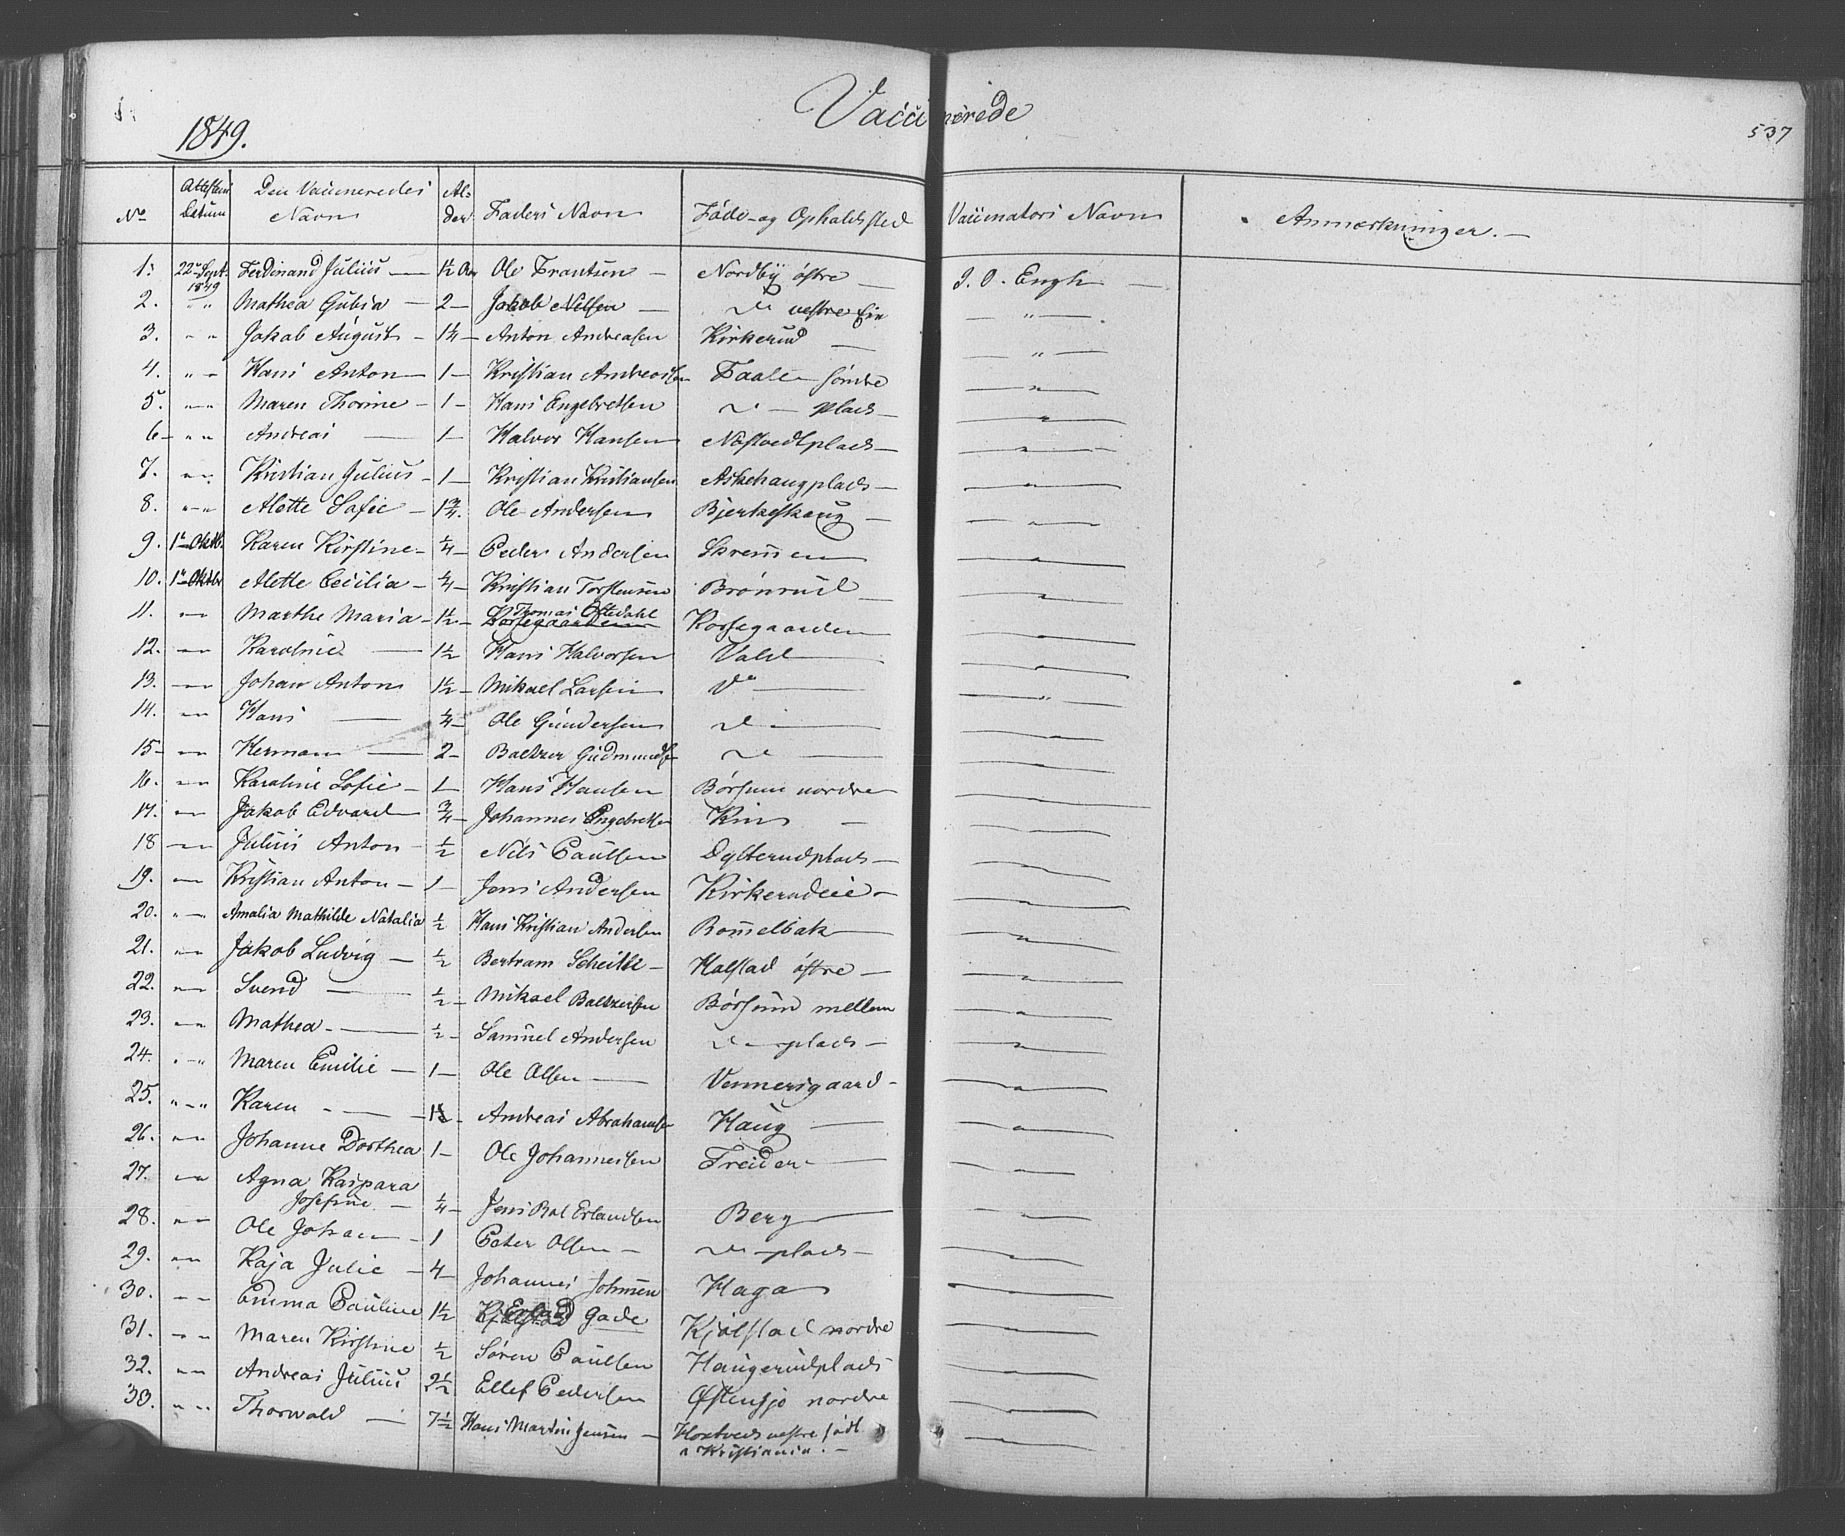 Vaccinerede
1849.
537
No Attestens Datum Den Vaccineredes Navn Alder Faders Navn Føde- og Opholdssted Vaccinators Navn Anmærkninger. —
1. 22 Sept. 1849 Ferdinand Julius — 1½ Aar Ole Frantsen — Nordby østre — J. O. Engh —
2. " " Mathea — 2 — Jakob Nilsen — do vestre Eie — " —
3. " " Jakob August — 1¼ — Anton Andreasen Kirkerud — — " —
4. " " Hans Anton — 1 — Kristian Andreassen Faale søndre — " —
5. " " Maren Thorine — 1 — Hans Engebretsen do — plads — — " —
6 — " " Andreas — 1 — Halvor Hansen Nøstvedtplads — — " —
7. " " Kristian Julius — 1 — Kristian Kristiansen Askehaugplads — — " —
8. " " Alette Sofie — 1¾. Ole Andersen Bjerkeskaug — — " —
9. 1 Oktb. Karen Kirstine — ¼ — Peder Andersen Skremmen — " —
10. 1 Oktbr Alette Cecilia — ¼ — Kristian Torstensen Brønnrud — — " —
11. " " Marthe Maria — 1½ — Thomas Oftedahl Korsegaarden — " —
12. " " Karoline — 1½ Hans Halvorsen Vald — — " —
13. " " Johan Anton 1½ — Mikael Larsen do — — " —
14. " " Hans — ¼ — Ole Gundersen do — — " —
15 — " " Herman — 2 — Baltzer Gudmundsen do — — " —
16. " " Karoline Sofie — 1 — Hans Hansen Børsum nordre — " —
17. " " Jakob Edvard ¾ — Johannes Engebretsen Kin — — " —
18 " " Julius Anton — ½ Nils Paulsen Dylterudplads — — " —
19. " " Kristian Anton — 1 — Jens Andersen Kirkerudeie — — " —
20. " " Amalia Mathilde Natalia ½ Hans Kristian Andersen Rommelbak — — " —
21. " " Jakob Ludvig — ½ Bertram — Halstad østre — — " —
22. " " Svend — ½ — Mikael Baltzersen Børsum mellem — " —
23. " " Mathea — ½ — Samuel Andersen do — plads — — " —
24. " " Maren Emilie — 1 — Ole Olsen — Vennersgaard — — " —
25. " " Karen — 1½ — Andreas Abrahamsen Haug — — " —
26. " " Johanne Dorthea 1 — Ole Johannessen Treider — — " —
27. " " Agna Kaspara
Josefine — ¼ — Jens Erlandsen Berg — — " —
28. " " Ole Johan — 1 Peter Olsen — do — plads — — " —
29. " " Kaja Julie — 4 — Johannes Johnsen Haga — " —
30. " " Emma Pauline 1½ Gade Kjølstad nordre — " —
31. " " Maren Kirstine ½ Søren Paulsen Haugerudplads — " —
32. " " Andreas Julius 2½ Ellef Pedersen Østensjø nordre — " —
33. " " Thorvald — 7½ Hans Martin Jensen — Hoxtvedt vestre født
i Kristiania. — — " —